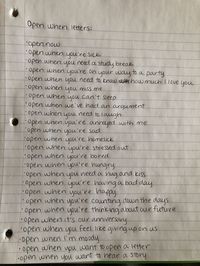 Open when letters:
· open now
· open when you're sick
· open when you need a study break
· open when you're on your way to a party
· open when you need to know how much I love you
· open when you miss me
· open when you can't sleep
· open when we've had an argument
· open when you need to laugh
· open when you're annoyed with me
· open when you're sad
· open when you're homesick
· open when you're stressed out
· open when you're bored
· open when you're hungry
· open when you need a hug and kiss
· open when you're having a bad day
· open when you're happy
· open when you're counting down the days
· open when you're thinking about our future
· open when it's our anniversary
· open when you feel like giving up on us
· open when I'm moody
· open when you want to open a letter
· open when you want to hear a story